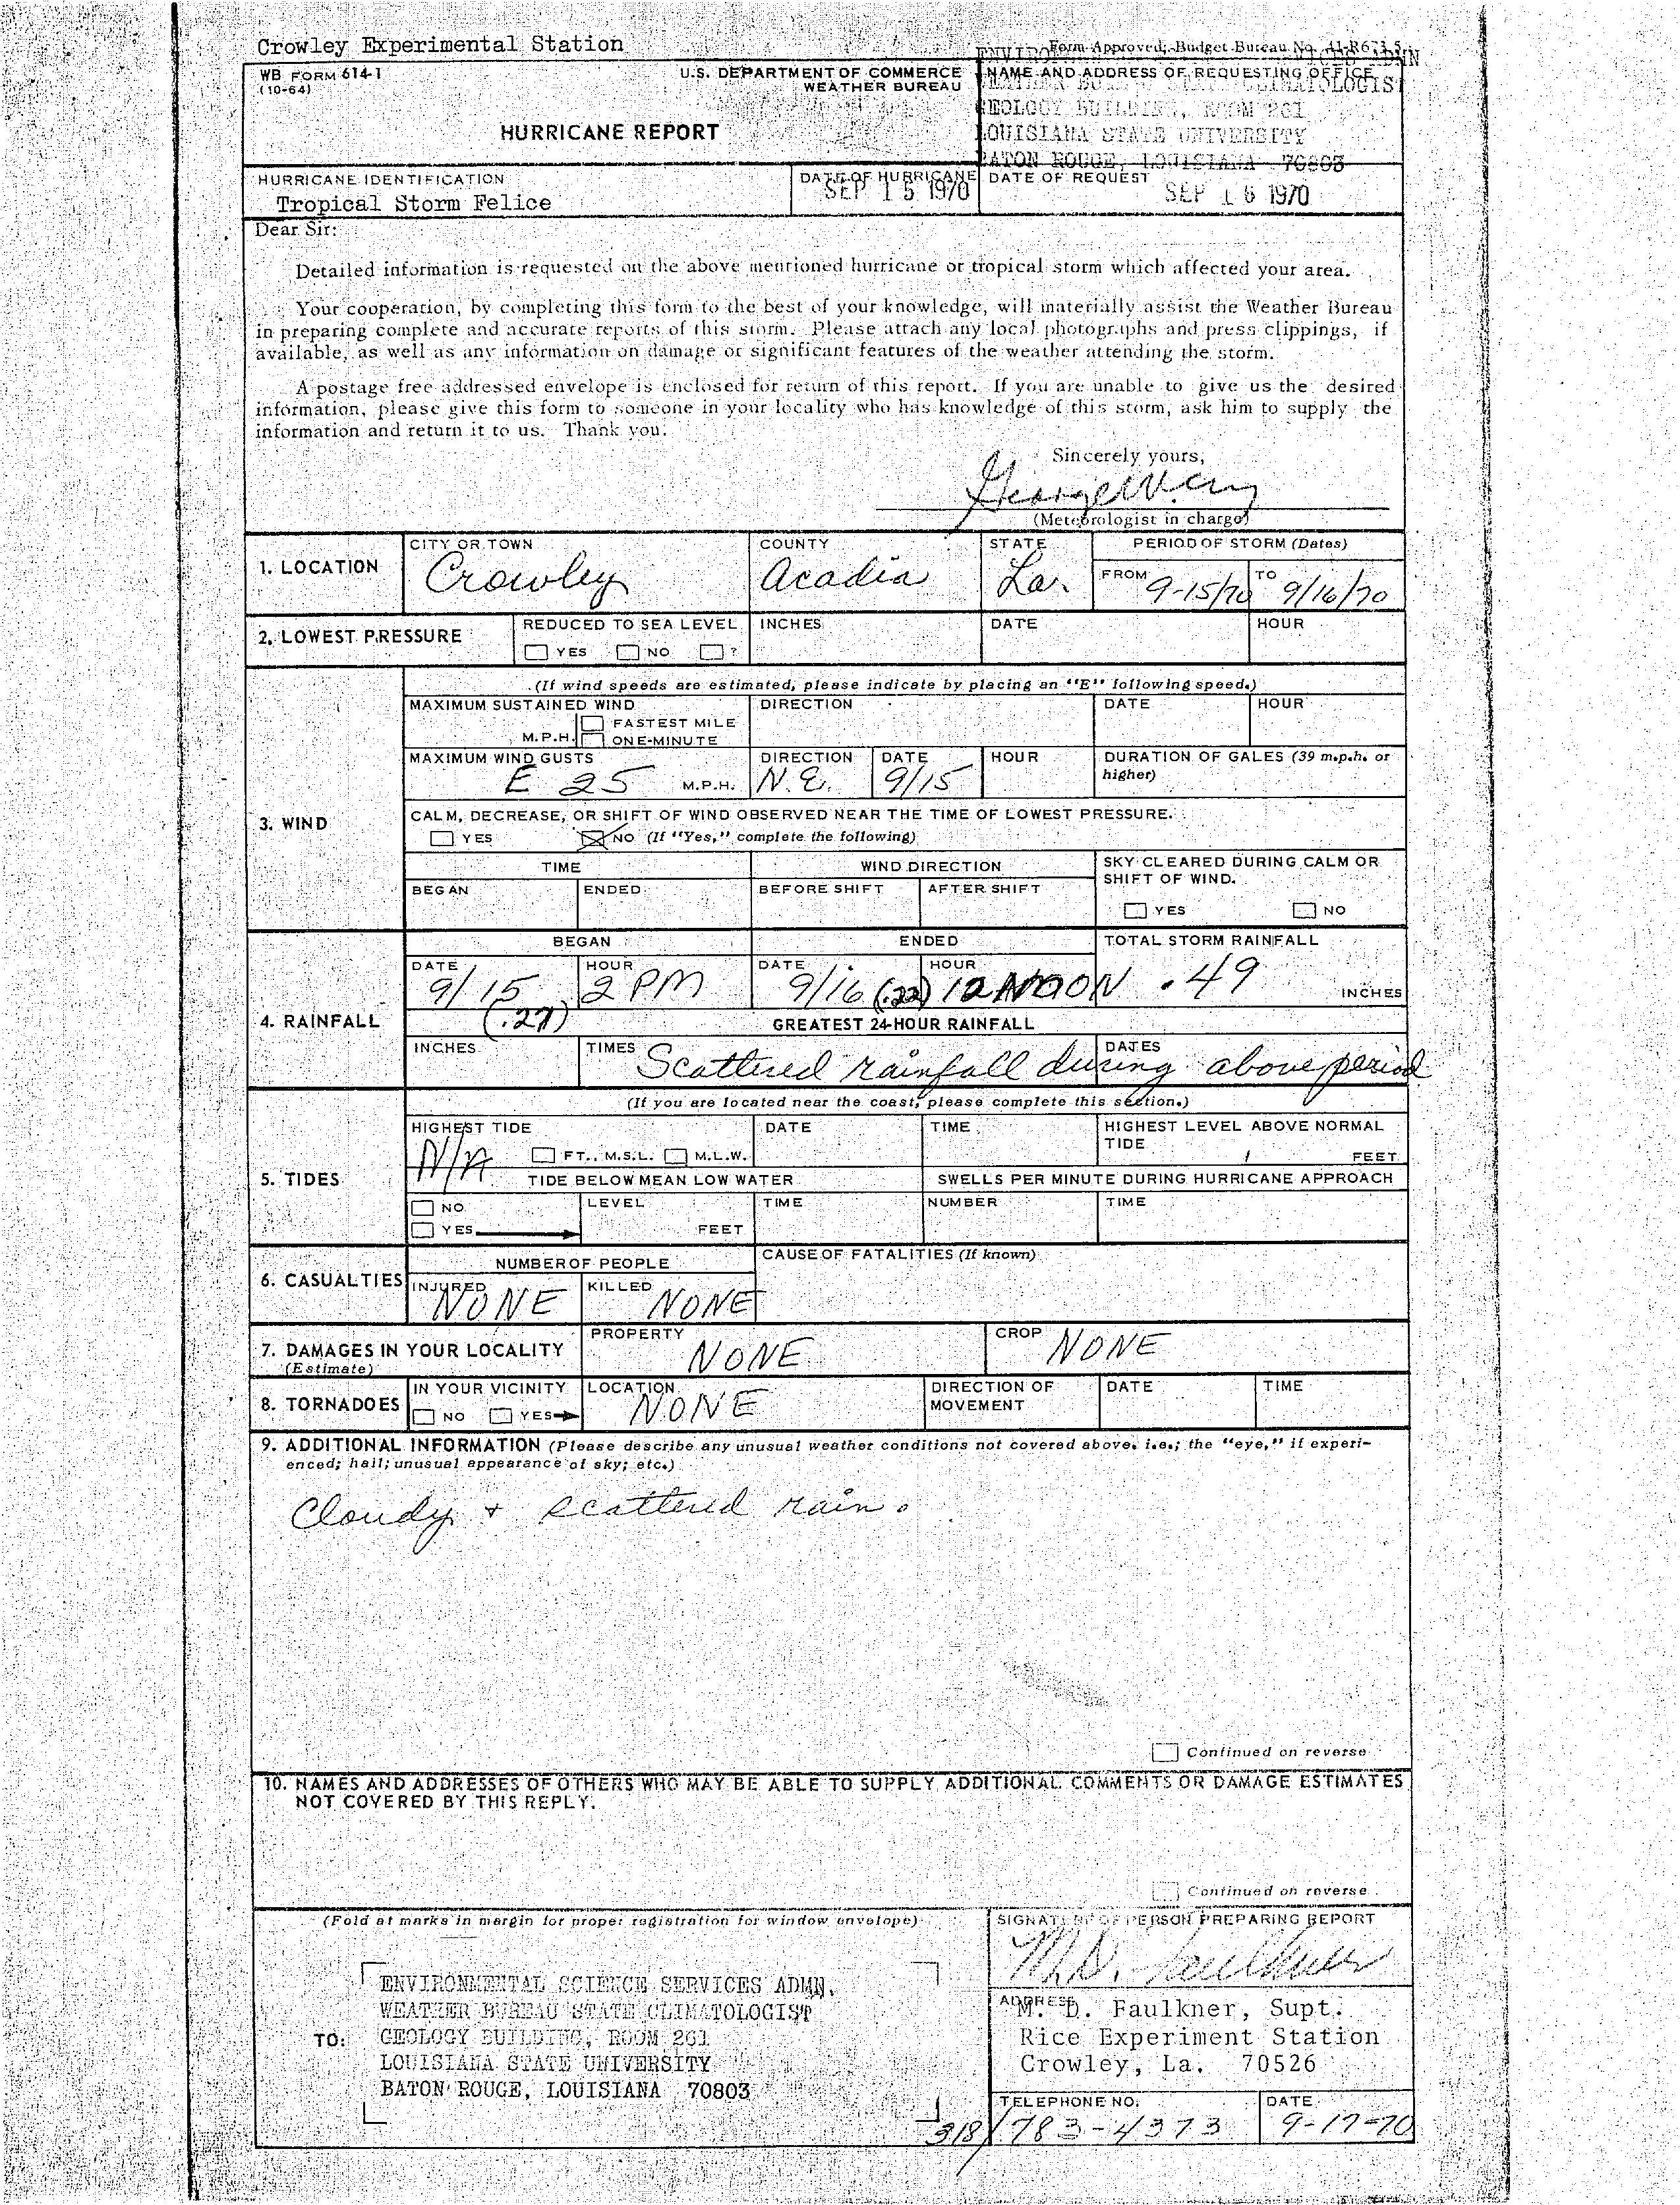 Crowley Experimental Station
Form Approved; Budget Bureau No. 41-R673.5
WB FORM 614-1
(10-64)
U.S. DEPARTMENT OF COMMERCE
WEATHER BUREAU
HURRICANE REPORT
NAME AND ADDRESS OF REQUESTING OFFICE
GEOLOGY BUILDING, ROOM 261
LOUISIANA STATE UNIVERSITY
BATON ROUGE, LOUISIANA 70803
HURRICANE IDENTIFICATION
Tropical Storm Felice
DATE OF HURRICANE
SEP 15 1970
DATE OF REQUEST
SEP 16 1970
Dear Sir:
Detailed information is requested on the above mentioned hurricane or tropical storm which affected your area.
Your cooperation, by completing this form to the best of your knowledge, will materially assist the Weather Bureau
in preparing complete and accurate reports of this storm. Please attach any local photographs and press clippings, if
available, as well as any information on damage or significant features of the weather attending the storm.
A postage free addressed envelope is enclosed for return of this report. If you are unable to give us the desired
information, please give this form to someone in your locality who has knowledge of this storm, ask him to supply the
information and return it to us. Thank you.
Sincerely yours,
(Meteorologist in charge)
1. LOCATION
CITY OR TOWN
Crowley
COUNTY
Acadia
STATE
La.
PERIOD OF STORM (Dates)
FROM 9-15/70 TO 9/16/70
2. LOWEST PRESSURE
REDUCED TO SEA LEVEL
YES NO ?
INCHES
DATE
HOUR
3. WIND
(If wind speeds are estimated, please indicate by placing an "E" following speed.)
MAXIMUM SUSTAINED WIND
M.P.H.
FASTEST MILE
ONE-MINUTE
DIRECTION
DATE
HOUR
MAXIMUM WIND GUSTS
E 25 M.P.H.
DIRECTION
N.E.
DATE
9/15
HOUR
DURATION OF GALES (39 m.p.h. or
higher)
CALM, DECREASE, OR SHIFT OF WIND OBSERVED NEAR THE TIME OF LOWEST PRESSURE.
YES NO (If "Yes," complete the following)
TIME
BEGAN
ENDED
WIND DIRECTION
BEFORE SHIFT
AFTER SHIFT
SKY CLEARED DURING CALM OR
SHIFT OF WIND.
YES NO
4. RAINFALL
BEGAN
DATE
9/15
(.27)
HOUR
2 PM
ENDED
DATE
9/16 (.22)
HOUR
12 NOON
TOTAL STORM RAINFALL
.49 INCHES
GREATEST 24-HOUR RAINFALL
INCHES
TIMES
DATES
Scattered rainfall during above period
5. TIDES
(If you are located near the coast, please complete this section.)
HIGHEST TIDE
N/A FT., M.S.L. M.L.W.
DATE
TIME
HIGHEST LEVEL ABOVE NORMAL
TIDE
FEET
TIDE BELOW MEAN LOW WATER
NO
YES
LEVEL
FEET
TIME
SWELLS PER MINUTE DURING HURRICANE APPROACH
NUMBER
TIME
6. CASUALTIES
NUMBER OF PEOPLE
INJURED
NONE
KILLED
NONE
CAUSE OF FATALITIES (If known)
7. DAMAGES IN YOUR LOCALITY
(Estimate)
PROPERTY
NONE
CROP
NONE
8. TORNADOES
IN YOUR VICINITY
NO YES
LOCATION
NONE
DIRECTION OF
MOVEMENT
DATE
TIME
9. ADDITIONAL INFORMATION (Please describe any unusual weather conditions not covered above. i.e.; the "eye," if experi-
enced; hail; unusual appearance of sky; etc.)
Cloudy + scattered rain.
Continued on reverse
10. NAMES AND ADDRESSES OF OTHERS WHO MAY BE ABLE TO SUPPLY ADDITIONAL COMMENTS OR DAMAGE ESTIMATES
NOT COVERED BY THIS REPLY.
Continued on reverse
(Fold at marks in margin for proper registration for window envelope)
TO:
ENVIRONMENTAL SCIENCE SERVICES ADMN.
WEATHER BUREAU STATE CLIMATOLOGIST
GEOLOGY BUILDING, ROOM 261
LOUISIANA STATE UNIVERSITY
BATON ROUGE, LOUISIANA 70803
SIGNATURE OF PERSON PREPARING REPORT
M.D. Faulkner
ADDRESS
M. D. Faulkner, Supt.
Rice Experiment Station
Crowley, La. 70526
TELEPHONE NO.
318/783-4373
DATE
9-17-70